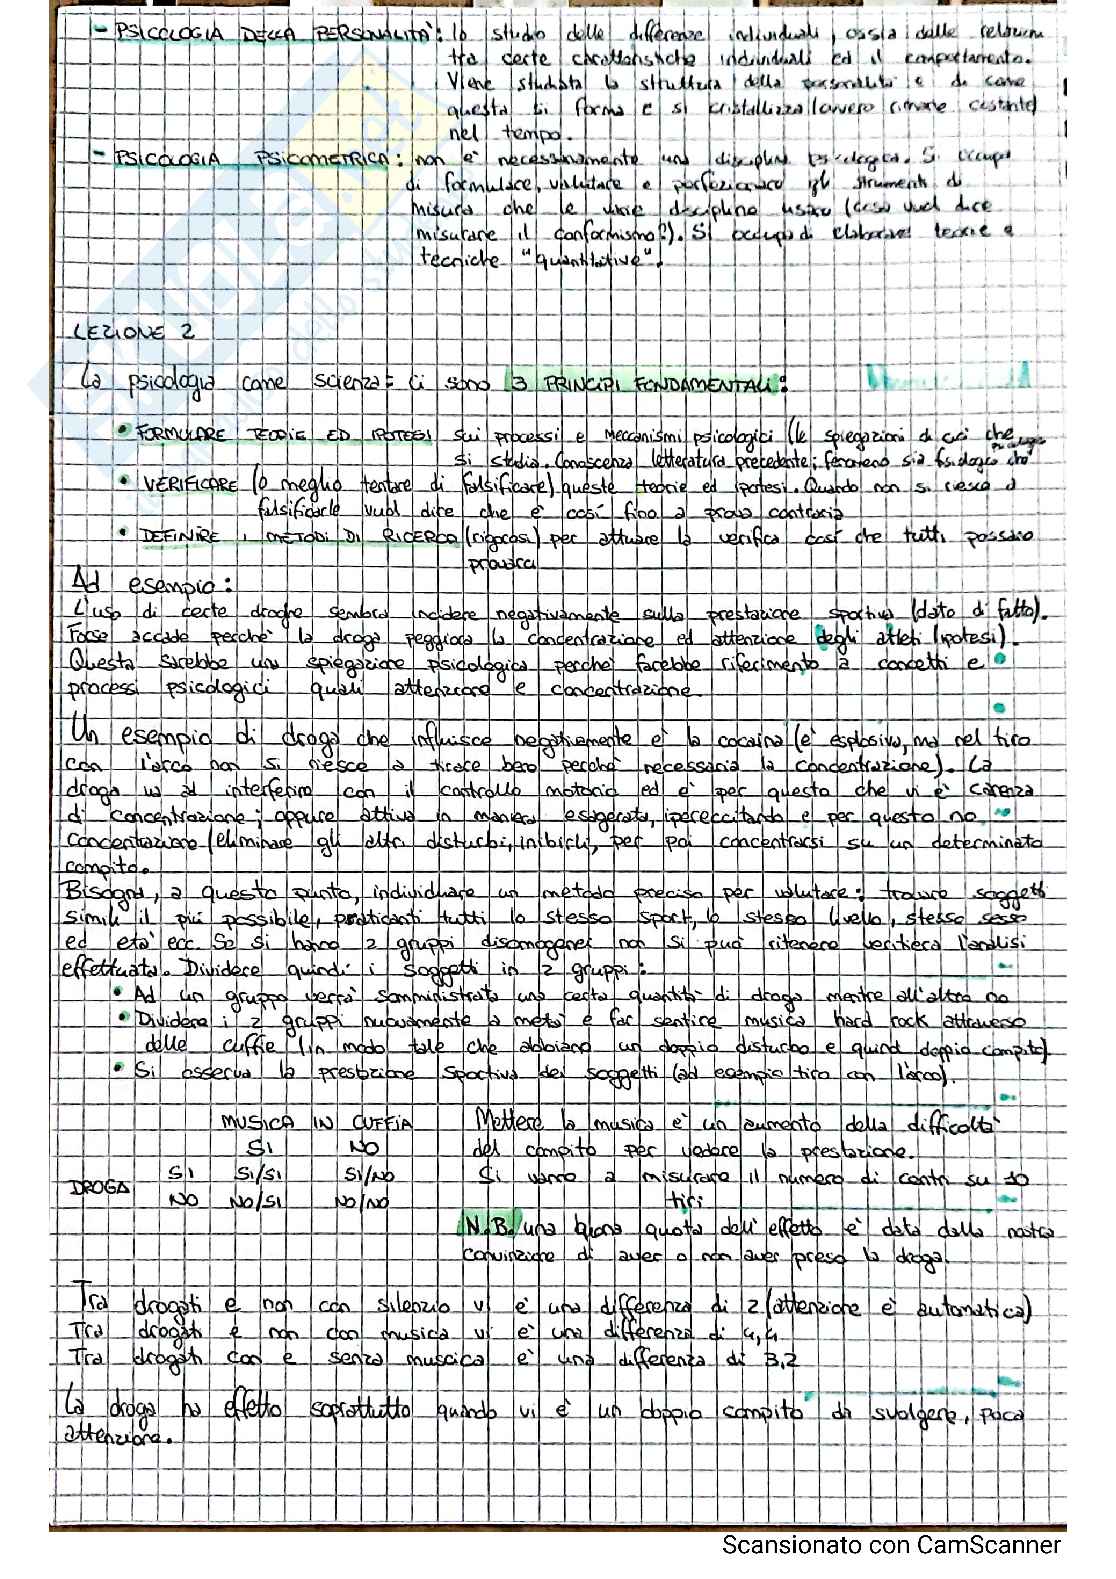 - PSICOLOGIA DELLA PERSONALITÀ: lo studio delle differenze individuali, ossia delle relazioni
tra certe caratteristiche individuali ed il comportamento.
Viene studiata la struttura della personalità e di come
questa si forma e si cristallizza (ovvero rimane costante)
nel tempo.
- PSICOLOGIA PSICOMETRICA: non è necessariamente una disciplina psicologica. Si occupa
di formulare, valutare e perfezionare gli strumenti di
misura che le varie discipline usano (cosa vuol dire
misurare il conformismo?). Si occupa di elaborare teorie e
tecniche "quantitative".
LEZIONE 2
La psicologia come scienza: ci sono 3 PRINCIPI FONDAMENTALI:
• FORMULARE TEORIE ED IPOTESI sui processi e meccanismi psicologici (le spiegazioni di ciò che
si studia. Conoscenza letteratura precedente; fenomeno sia fisiologico che
• VERIFICARE (o meglio tentare di falsificare) queste teorie ed ipotesi. Quando non si riesce a
falsificarle vuol dire che è così fino a prova contraria
• DEFINIRE i METODI DI RICERCA (rigorosi) per attuare la verifica così che tutti possano
provarci
Ad esempio:
L'uso di certe droghe sembra incidere negativamente sulla prestazione sportiva (dato di fatto).
Forse accade perchè la droga peggiora la concentrazione ed attenzione degli atleti (ipotesi).
Questa sarebbe una spiegazione psicologica perchè farebbe riferimento a concetti e
processi psicologici quali attenzione e concentrazione.
Un esempio di droga che influisce negativamente è la cocaina (è esplosiva, ma nel tiro
con l'arco non si riesce a tirare bene perchè necessaria la concentrazione). La
droga va ad interferire con il controllo motorio ed è per questo che vi è carenza
di concentrazione; oppure attiva in maniera esagerata, ipereccitando e per questo no
concentrazione (eliminare gli altri disturbi, inibirli, per poi concentrarsi su un determinato
compito.
Bisogna, a questo punto, individuare un metodo preciso per valutare: trovare soggetti
simili il più possibile, praticanti tutti lo stesso sport, lo stesso livello, stesso sesso
ed età ecc. Se si hanno 2 gruppi disomogenei non si può ritenere veritiera l'analisi
effettuata. Dividere quindi i soggetti in 2 gruppi:
• Ad un gruppo verrà somministrata una certa quantità di droga mentre all'altro no
• Dividere i 2 gruppi nuovamente a metà e far sentire musica hard rock attraverso
delle cuffie (in modo tale che abbiano un doppio disturbo e quindi doppio compito)
• Si osserva la prestazione sportiva dei soggetti (ad esempio tiro con l'arco).
MUSICA IN CUFFIA
SI NO
DROGA SI SI/SI SI/NO
NO NO/SI NO/NO
Mettere la musica è un aumento della difficoltà
del compito per vedere la prestazione.
Si vanno a misurare il numero di centri su 10
tiri
N.B. una buona quota dell'effetto è data dalla nostra
convinzione di aver o non aver preso la droga.
Tra drogati e non con silenzio vi è una differenza di 2 (attenzione è automatica)
Tra drogati e non con musica vi è una differenza di 4,4
Tra drogati con e senza muscica è una differenza di 3,2
La droga ha effetto soprattutto quando vi è un doppio compito da svolgere, poca
attenzione.
Scansionato con CamScanner